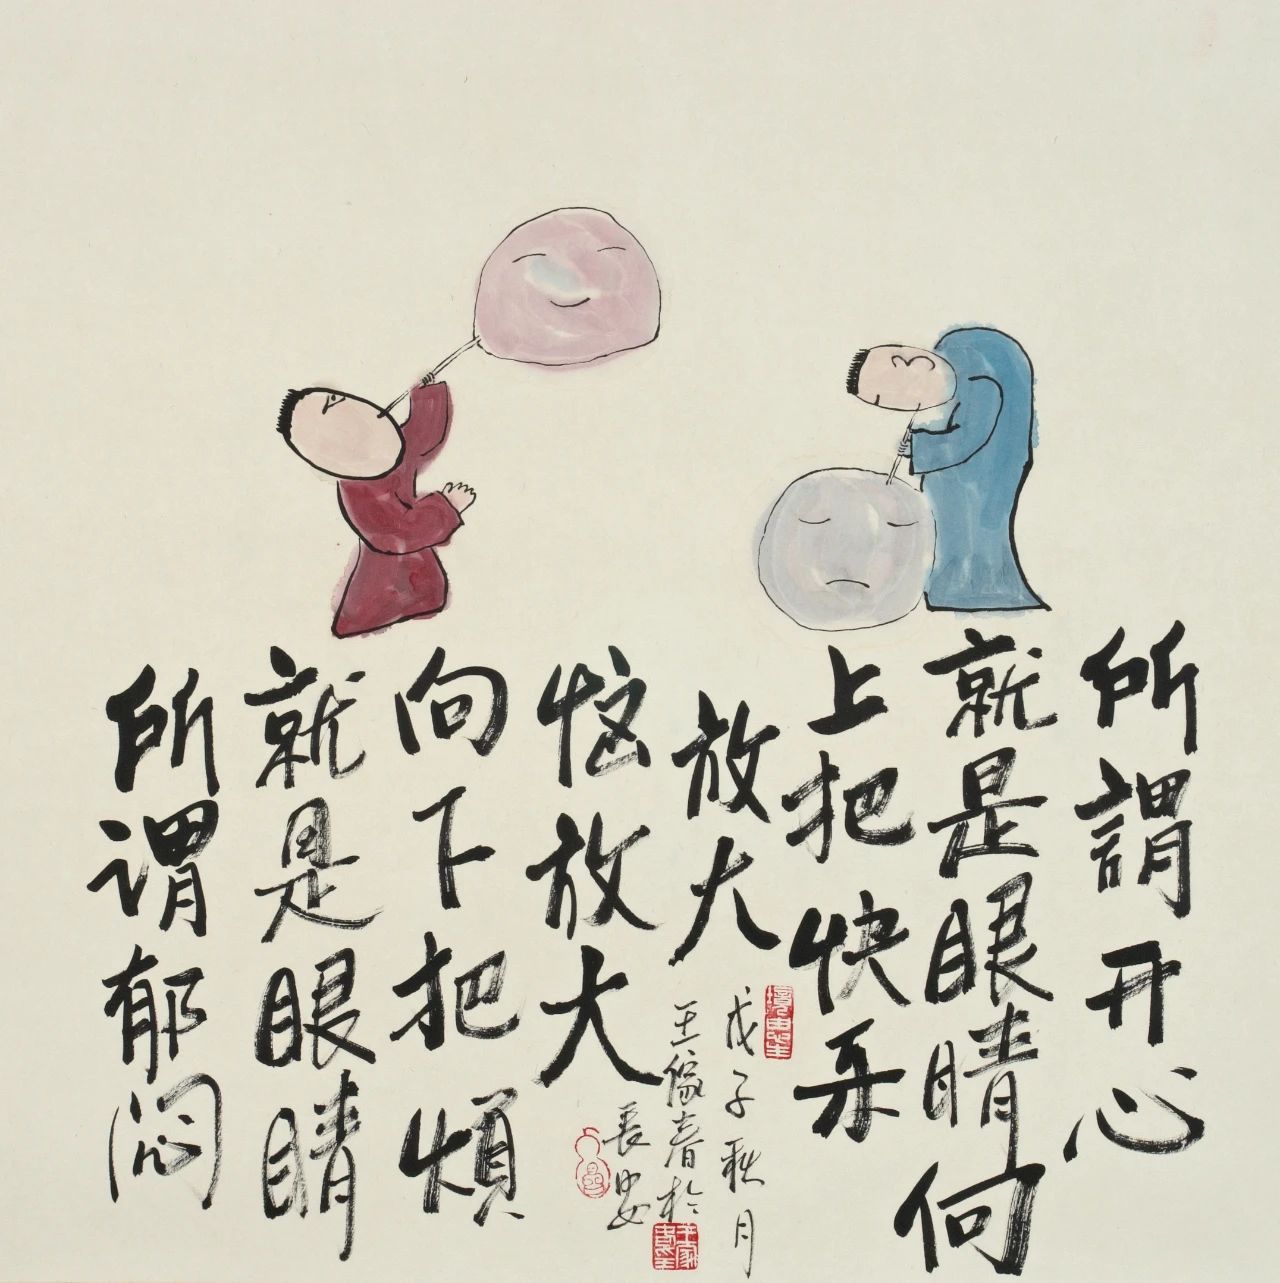 所謂开心
就是眼睛向
上把快乐
放大
所谓郁闷
就是眼睛
向下把煩
恼放大
境由心生
戊子秋月
王家春於
長安